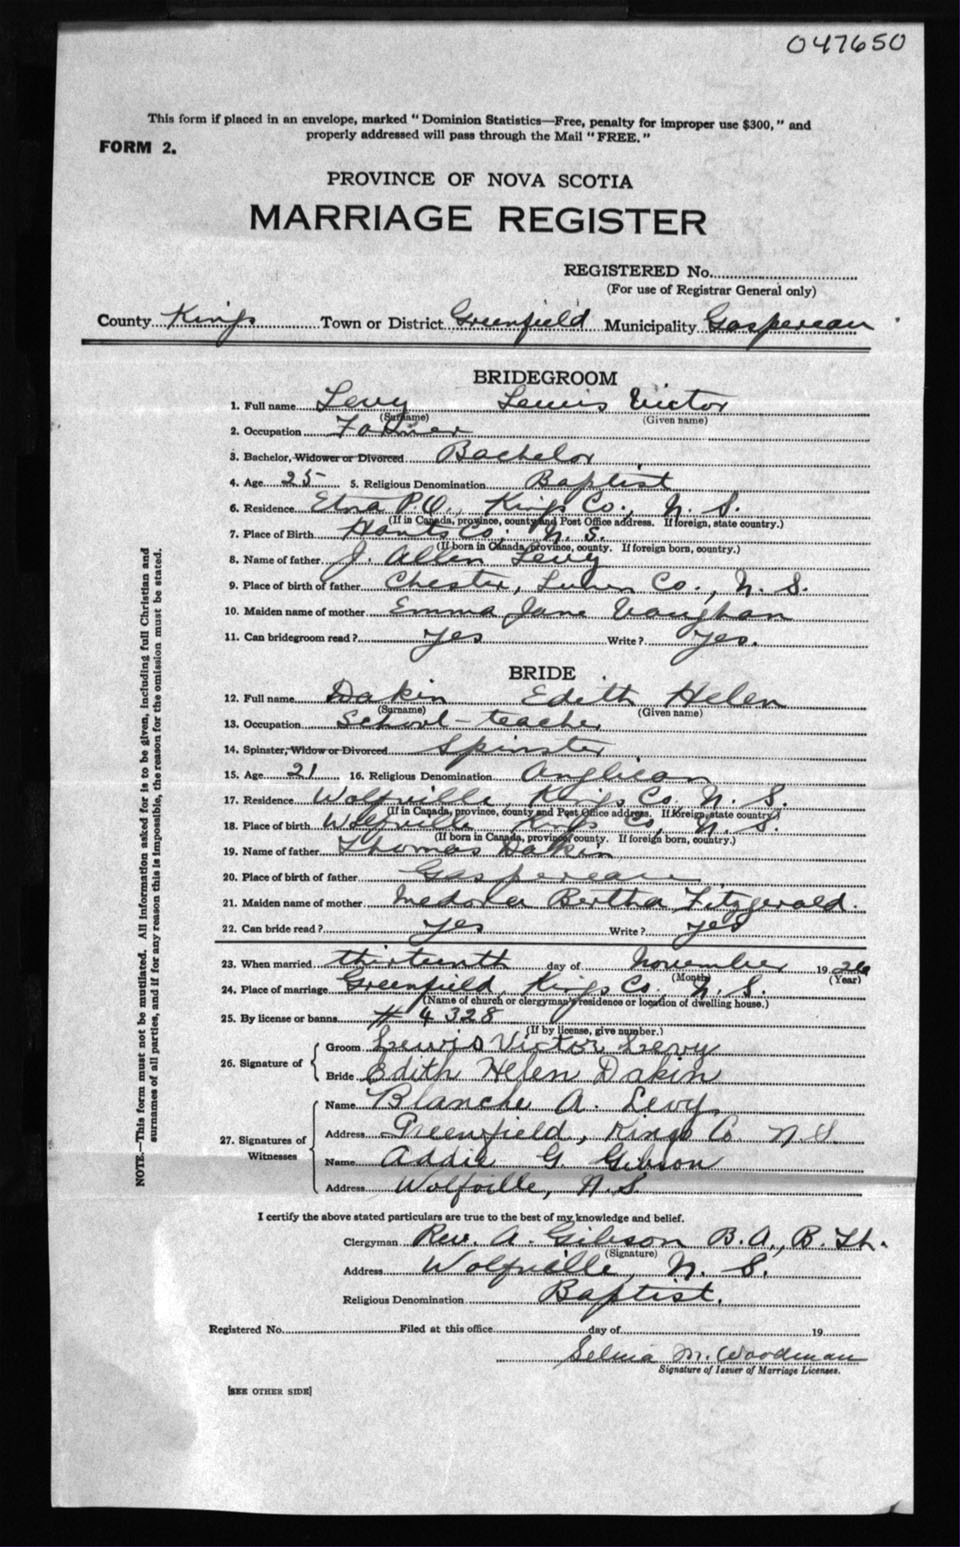 047650
This form if placed in an envelope, marked "Dominion Statistics—Free, penalty for improper use $300," and
properly addressed will pass through the Mail "FREE."
FORM 2.
PROVINCE OF NOVA SCOTIA
MARRIAGE REGISTER
REGISTERED No.
(For use of Registrar General only)
County Kings Town or District Greenfield Municipality Gaspereau
BRIDEGROOM
1. Full name Levy Lewis Victor
(Surname) (Given name)
2. Occupation Farmer
3. Bachelor, Widower or Divorced Bachelor
4. Age 25 5. Religious Denomination Baptist
6. Residence Etna P.O., Kings Co., N. S.
(If in Canada, province, county and Post Office address. If foreign, state country.)
7. Place of Birth Hants Co., N. S.
(If born in Canada, province, county. If foreign born, country.)
8. Name of father J. Allen Levy
9. Place of birth of father Chester, Lunen Co., N. S.
10. Maiden name of mother Emma Jane Vaughan
11. Can bridegroom read? yes Write? yes.
BRIDE
12. Full name Dakin Edith Helen
(Surname) (Given name)
13. Occupation School-teacher
14. Spinster, Widow or Divorced Spinster
15. Age 21 16. Religious Denomination Anglican
17. Residence Wolfville, Kings Co. N. S.
(If in Canada, province, county and Post Office address. If foreign, state country.)
18. Place of birth Wolfville Kings Co, N. S.
(If born in Canada, province, county. If foreign born, country.)
19. Name of father Thomas Dakin
20. Place of birth of father Gaspereau
21. Maiden name of mother Medora Bertha Fitzgerald.
22. Can bride read? yes Write? yes
23. When married thirteenth day of November 1926
(Month) (Year)
24. Place of marriage Greenfield, Kings Co. N. S.
(Name of church or clergyman's residence or location of dwelling house.)
25. By license or banns # 4328
(If by license, give number.)
26. Signature of Groom Lewis Victor Levy
Bride Edith Helen Dakin
27. Signatures of Witnesses Name Blanche A. Levy
Address Greenfield, Kings Co N.S.
Name Addie G. Gibson
Address Wolfville, N.S.
I certify the above stated particulars are true to the best of my knowledge and belief.
Clergyman Rev. A. Gibson B.A., B.Th.
(Signature)
Address Wolfville, N. S.
Religious Denomination Baptist.
Registered No. Filed at this office day of 19
Selmia M. Woodman
Signature of Issuer of Marriage Licenses.
[SEE OTHER SIDE]
NOTE.—This form must not be mutilated. All information asked for is to be given, including full Christian and
surnames of all parties, and if for any reason this is impossible, the reason for the omission must be stated.